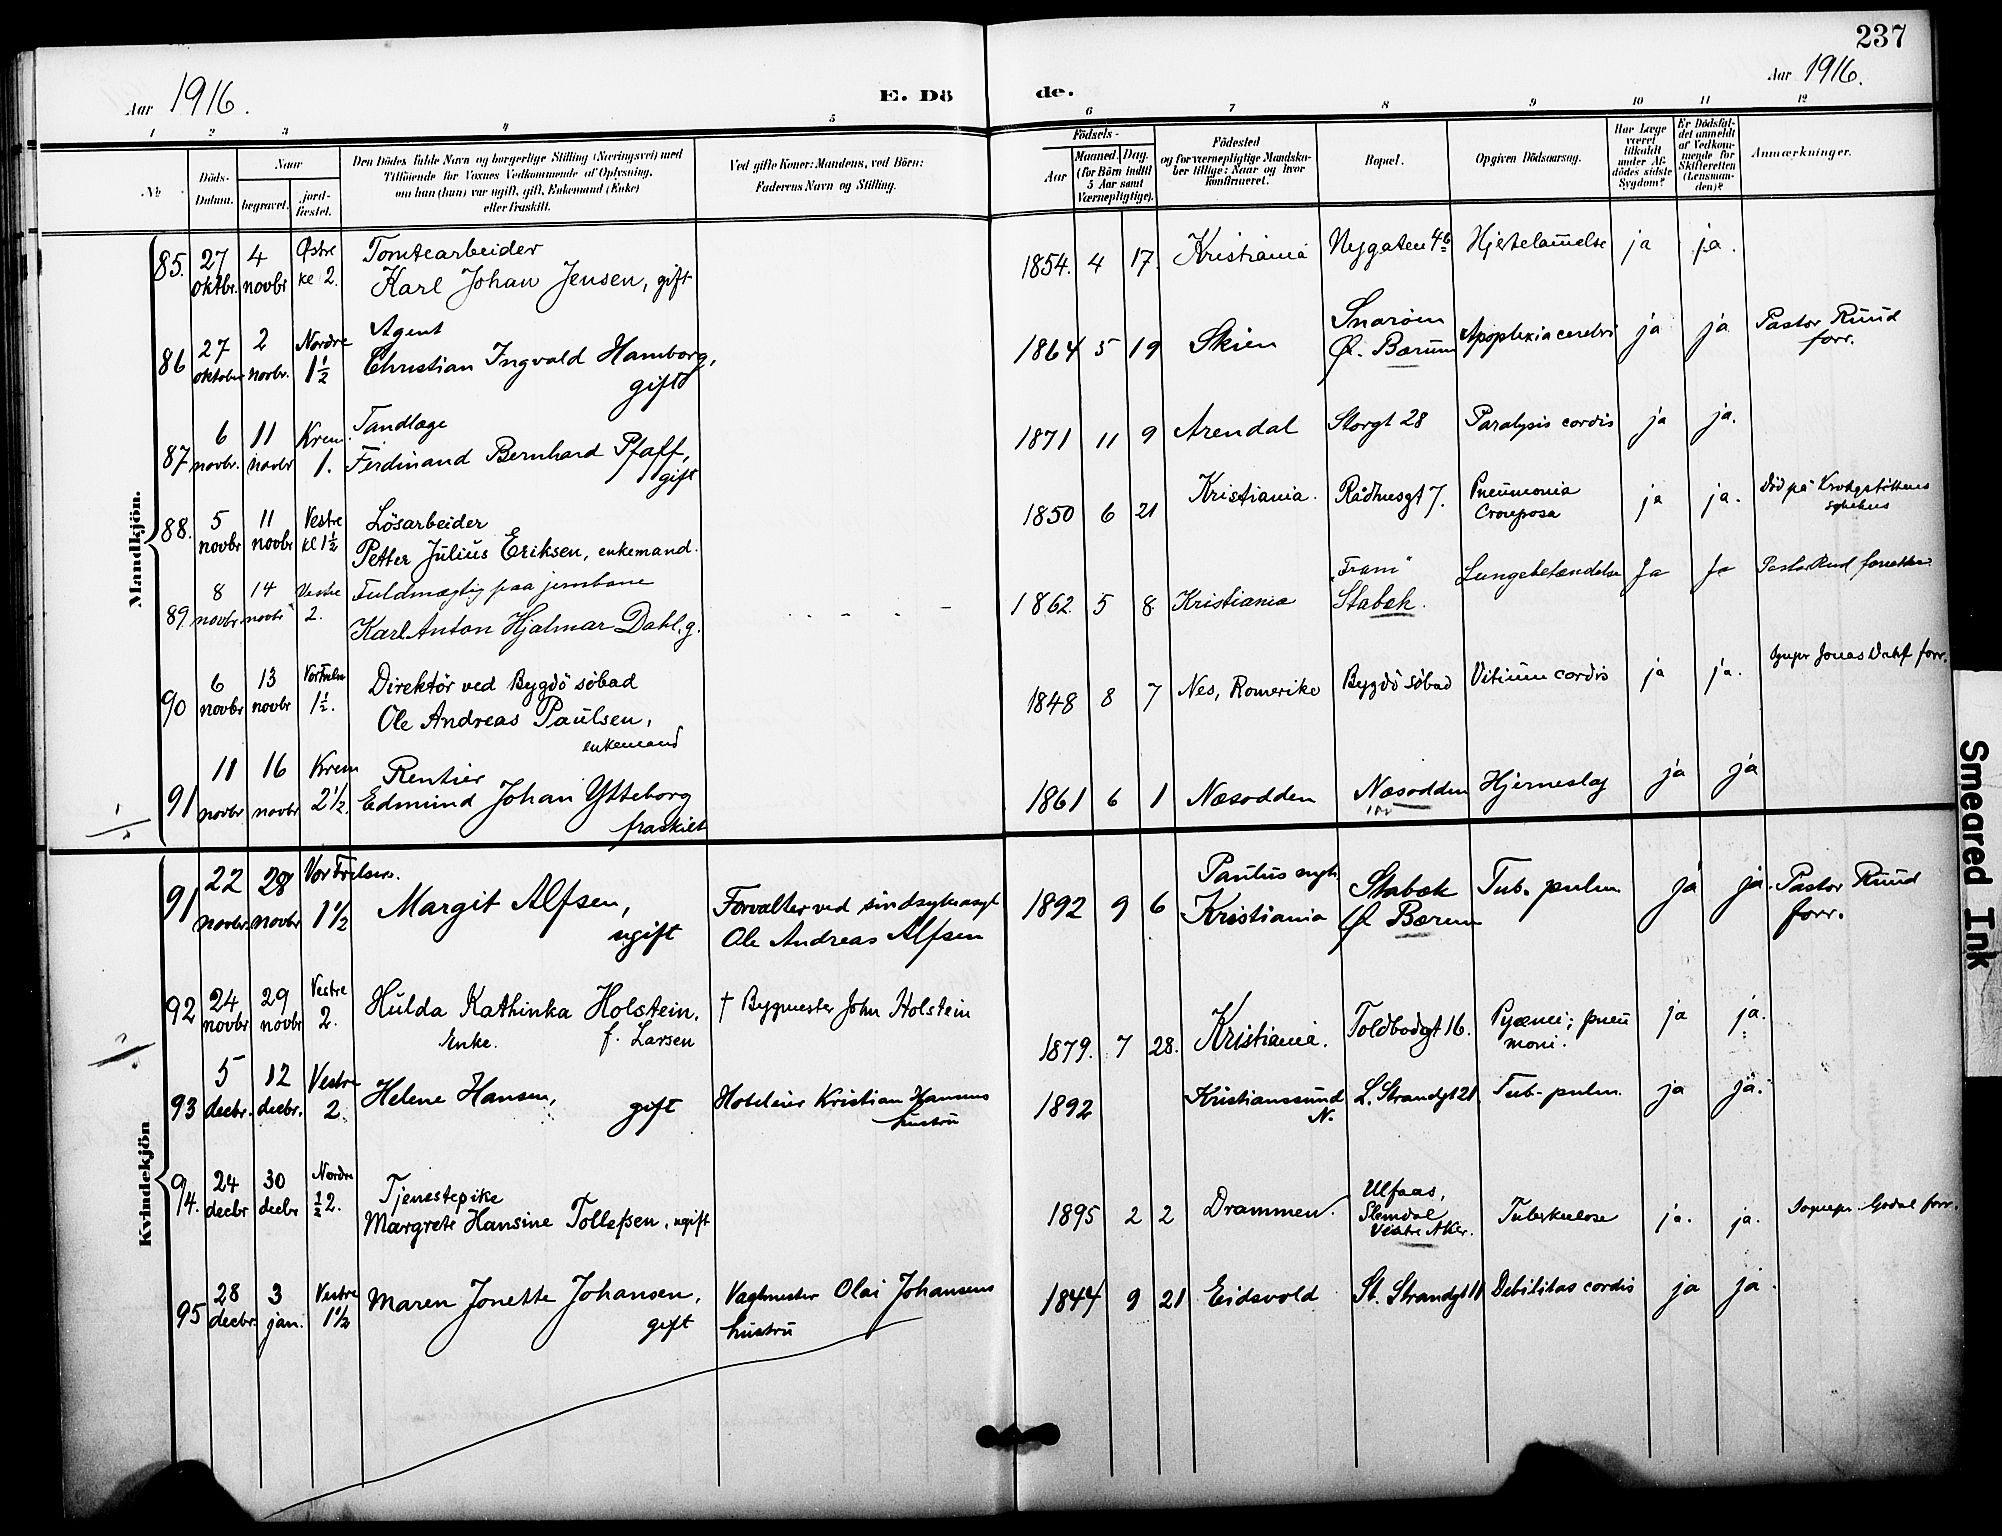 237
Aar 1916.
E. Döde.
Aar 1916.
1 2 3 4 5 6 7 8 9 10 11 12
No.
Döds-Datum.
Naar
begravet.
jord-fæstet.
Den Dödes fulde Navn og borgerlige Stilling (Næringsvei) med
Tilföiende for Voxnes Vedkommende af Oplysning,
om han (hun) var ugift, gift, Enkemand (Enke)
eller fraskilt.
Ved gifte Koner: Mandens, ved Börn:
Faderens Navn og Stilling.
Födsels-
Aar
Maaned. Dag.
(for Börn indtil
5 Aar samt
Værnepligtige).
Födested
og for værnepligtige Mandska-
ber tillige: Naar og hvor
konfirmeret.
Bopæl.
Opgiven Dödsaarsag.
Har Læge
været
tilkaldt
under Af-
dödes sidste
Sygdom?
Er Dödsfal-
det anmeldt
af Vedkom-
mende for
Skifteretten
(Lensman-
den)?
Anmærkninger.
Mandkjön.
85. 27 oktbr. 4 novbr Østre kl 2. Tomtearbeider
Karl Johan Jensen, gift
1854. 4 17. Kristiania Nygaten 46 Hjertelammelse ja ja.
86 27 oktober 2 novbr. Nordre 1½ Agent
Christian Ingvald Hamborg,
gift
1864 5 19 Skien Snarøen
Ø. Bærum Apoplexia cerebri ja ja Pastor Ruud
forr.
87 6 novbr. 11 novbr Krem. 1. Tandlæge
Ferdinand Bernhard Pfaff,
gift
1871 11 9 Arendal Storgt 28 Paralysis cordis ja ja.
88. 5 novbr 11 novbr Vestre kl 1½ Lösarbeider
Petter Julius Eriksen, enkemand.
1850 6 21 Kristiania. Rådhusgt 7. Pneumonia
Crouposa ja ja. Död på Krohgstöttens
sykehus
89. 8 novbr. 14 novbr Vestre 2. Fuldmægtig paa jernbane
Karl Anton Hjalmar Dahl, g.
1862 5 8 Kristiania "Fram"
Stabæk. Lungebetændelse Ja Ja
90 6 novbr 13 novbr Vor Frelser 1½. Direktör ved Bygdö söbad
Ole Andreas Paulsen,
enkemand
1848 8 7 Nes, Romerike Bygdö Söbad Vitium cordis ja ja. Sognepr Jonas Dahl forr.
91 11 novbr. 16 novbr Krem 2½. Rentier
Edmund Johan Ytteborg
fraskilt
1861 6 1 Næsodden Næsodden Hjerneslag ja ja
Kvindekjön
91 22 novbr. 28 novbr Vor Frelsers. 1½ Margit Alfsen,
ugift
Forvalter ved sindsykeasyl
Ole Andreas Alfsen
1892 9 6 Paulus
Kristiania Stabæk
Ø Bærum Tub. pulm ja ja. Pastor Ruud
forr.
92 24 novbr 29 novbr Vestre 2. Hulda Kathinka Holstein,
Enke. f. Larsen
† Bygmester John Holstein
1879. 7 28. Kristiania. Toldbodgt 16. Pyæmi; pneu
moni. ja ja.
93 5 decbr. 12 decbr. Vestre 2. Helene Hansen,
gift
Hoteleier Kristian Hansens
hustru
1892 Kristianssund
N. L. Strandgt 21 Tub. pulm. ja ja.
94. 24 decbr 30 decbr Nordre ½ 2. Tjenestepike
Margrete Hansine Tollefsen, ugift
1895 2 2 Drammen. Ulfaas,
Slemdal
Vestre Aker. Tuberkulose ja. ja. Sognepr. Godal forr.
95 28 decbr. 3 jan. Vestre 1½ Maren Jonette Johansen,
gift
Vagtmester Olai Johansens
hustru
1844 9 21 Eidsvold St. Strandgt 11 Debilitas cordis ja ja
Smeared Ink